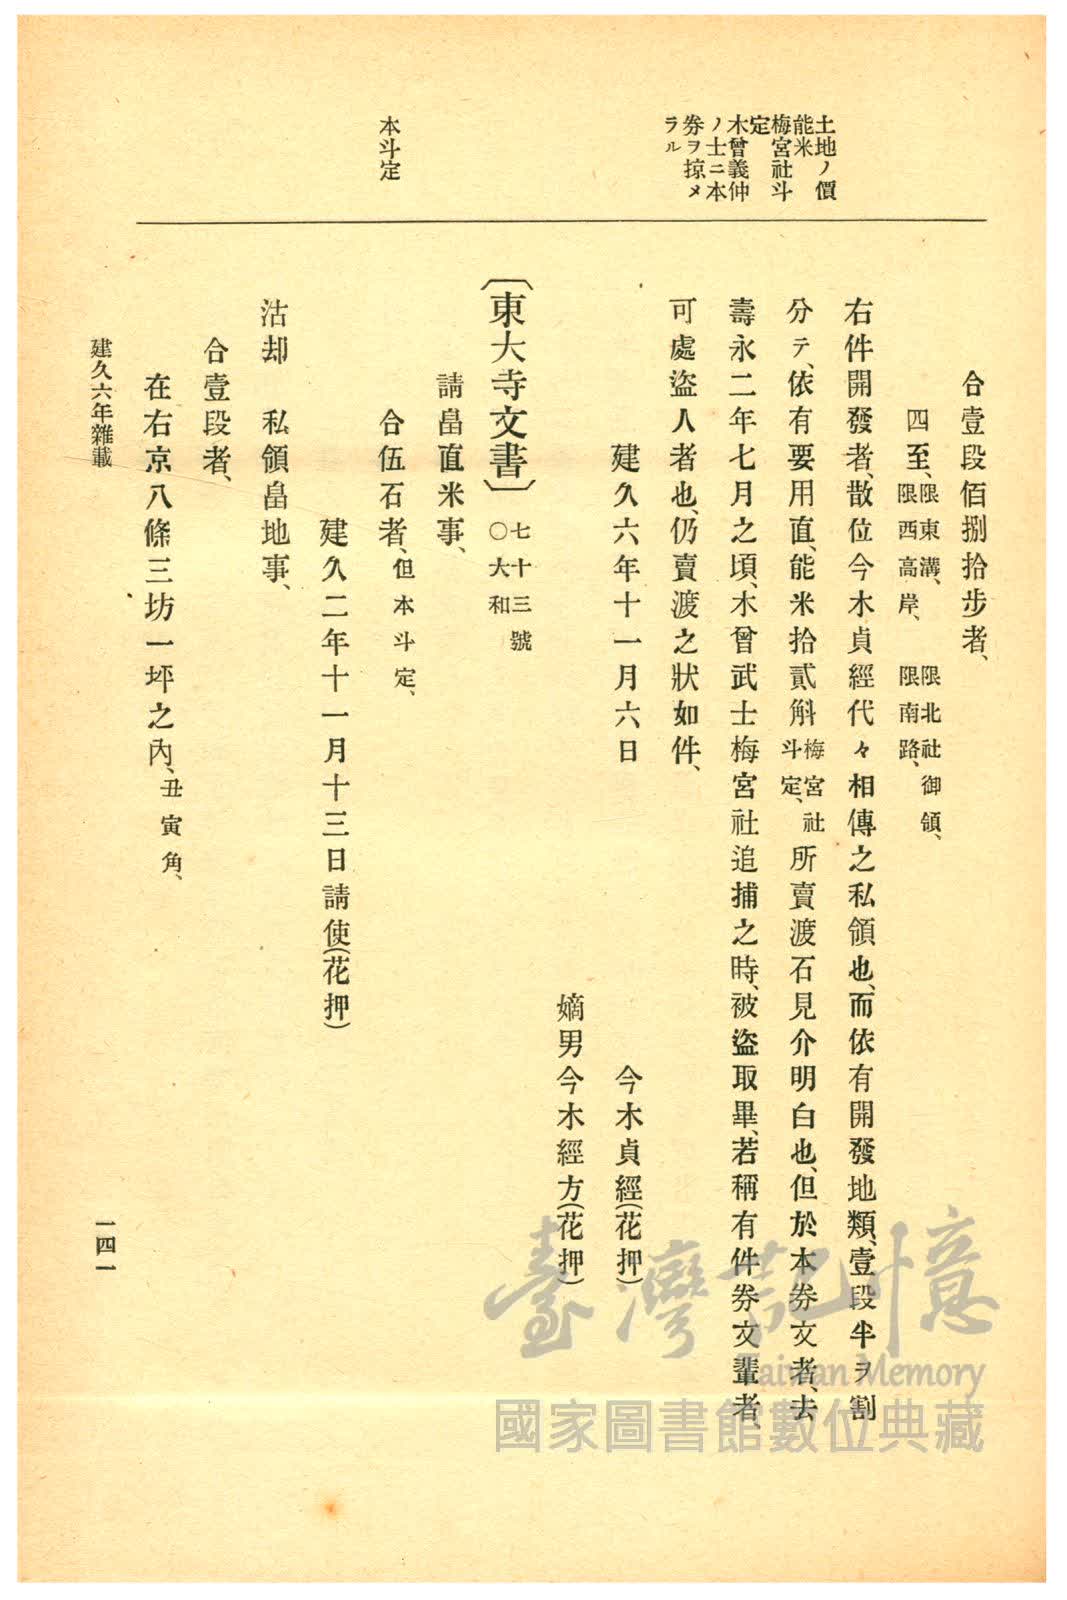 土地ノ價
能米
梅宮社斗
定
木曾義仲
ノ士ニ本
券ヲ掠メ
ラル
本斗定
合壹段佰捌拾步者、
四至、限東溝、限西高岸、限北社御領、限南路、
右件開發者、散位今木貞經代々相傳之私領也、而依有開發地類、壹段半ヲ割
分テ、依有要用直、能米拾貳斛梅宮社斗定、所賣渡石見介明白也、但於本券文者、去
壽永二年七月之頃、木曾武士梅宮社追捕之時、被盜取畢、若稱有件券文輩者、
可處盜人者也、仍賣渡之狀如件、
建久六年十一月六日
今木貞經(花押)
嫡男今木經方(花押)
〔東大寺文書〕七十三號○大和
請畠直米事、
合伍石者、但本斗定、
建久二年十一月十三日請使(花押)
沽却　私領畠地事、
合壹段者、
在右京八條三坊一坪之內、丑寅角、
建久六年雜載
一四一
臺灣記憶
Taiwan Memory
國家圖書館數位典藏